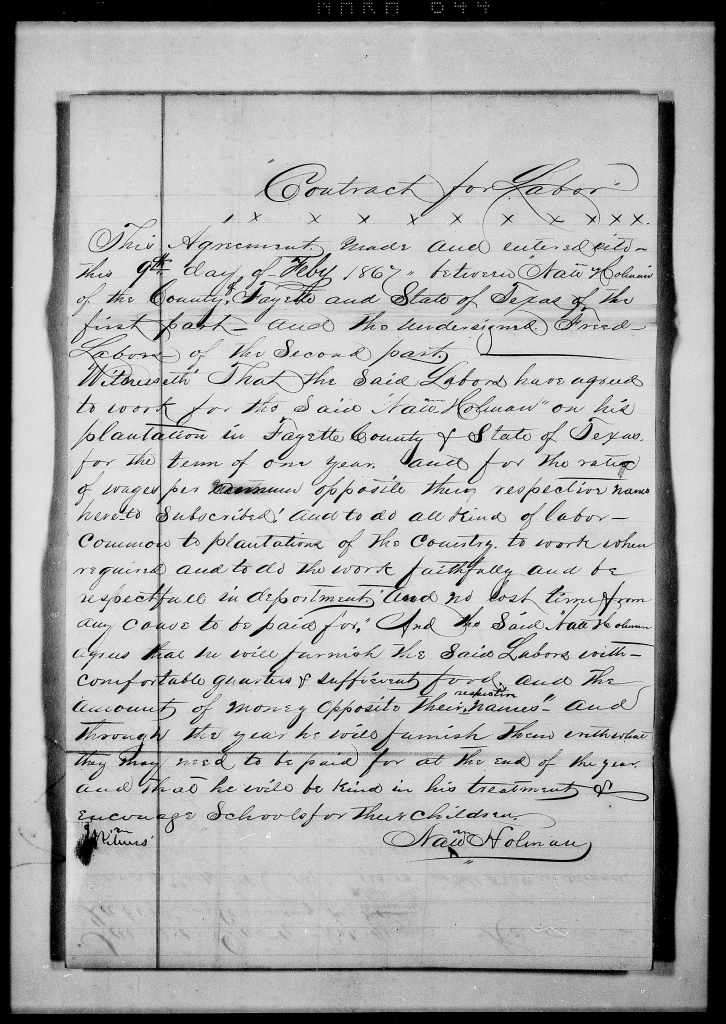 NARA 644
"Contract for Labor"
x x x x x x x x x x x x.
This Agreement made and entered into
this 9th day of Feby 1867" between "Natt Holman
of the County of Fayette and State of Texas of the
first part - and the undersigned Freed-
Labors of the Second part.
Witnesseth" That the Said Labors have agreed
to work for the Said "Natt Holman" on his
plantation in Fayette County & State of Texas.
for the term of one year. and for the rates
of wages per annum opposite their respective names
here-to Subscribed. and to do all kind of labor-
common to plantations of the Country. to work when
required and to do the work faithfully and be
respectfull in deportment, and no lost time from
any cause to be paid for," And the Said Natt Holman
agrees that he will furnish the Said Labors with-
comfortable quarters & sufficient food, and the
amount of money opposite their respective names" and
through the year he will furnish them with what
they may need to be paid for at the end of the year
and that he will be kind in his treatment &
encourage Schools for their children.
Natt Holman